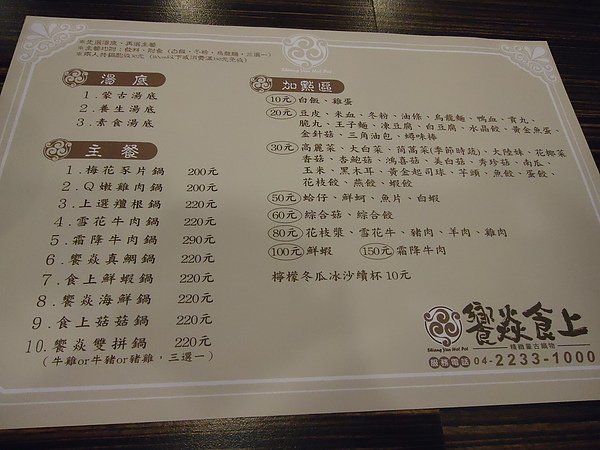 ※先選湯底、再選主餐
※主餐均附：飲料、附食（白飯、冬粉、烏龍麵，三選一）
Shiang Yan Hot Pot
湯底
1.蒙古湯底
2.養生湯底
3.素食湯底
主餐
1.梅花豕片鍋 200元
2.Q嫩雞肉鍋 200元
3.上選羶根鍋 220元
4.雪花牛肉鍋 220元
5.霜降牛肉鍋 290元
6.饗焱真鯛鍋 220元
7.食上鮮蝦鍋 220元
8.饗焱海鮮鍋 220元
9.食上菇菇鍋 220元
10.饗焱雙拼鍋 220元
(牛雞or牛豬or豬雞，三選一)
加點區
10元 白飯、雞蛋
20元 豆皮、米血、冬粉、油條、烏龍麵、鴨血、貢丸、
脆丸、王子麵、凍豆腐、白豆腐、水晶餃、黃金魚蛋、
金針菇、三角油包、蟳味棒
30元 高麗菜、大白菜、茼萵菜(季節時蔬)、大陸妹、花椰菜
香菇、杏鮑菇、鴻喜菇、美白菇、秀珍菇、南瓜、
玉米、黑木耳、黃金起司球、芋頭、魚餃、蛋餃、
花枝餃、燕餃、蝦餃
50元 蛤仔、鮮蚵、魚片、白蝦
60元 綜合菇、綜合餃
80元 花枝漿、雪花牛、豬肉、羊肉、雞肉
100元 鮮蝦 150元 霜降牛肉
檸檬冬瓜冰沙續杯 10元
饗焱食上
Shiang Yan Hot Pot
精緻蒙古鍋物
服務電話 04-2233-1000